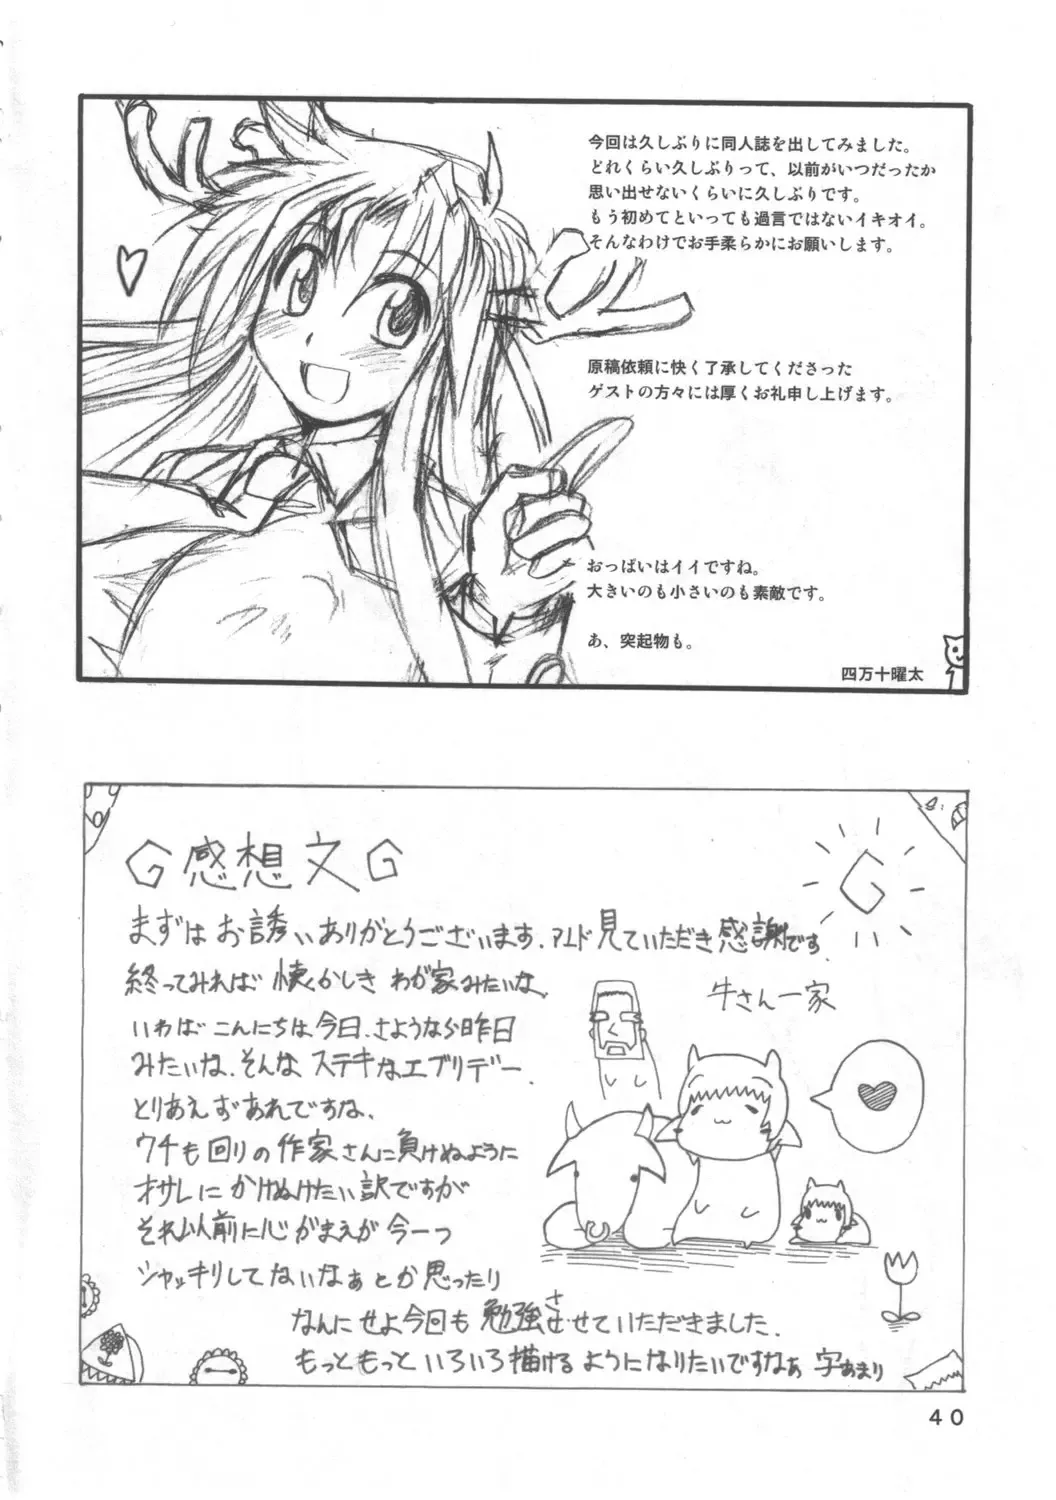 今回は久しぶりに同人誌を出してみました。
どれくらい久しぶりって、以前がいつだったか
思い出せないくらいに久しぶりです。
もう初めてといっても過言ではないイキオイ。
そんなわけでお手柔らかにお願いします。
原稿依頼に快く了承してくださった
ゲストの方々には厚くお礼申し上げます。
おっぱいはイイですね。
大きいのも小さいのも素敵です。
あ、突起物も。
四万十曜太
G感想文G
まずはお誘いありがとうございます、アンド見ていただき感謝です。
終ってみれば懐かしき わが家みたいな、
いわばこんにちは今日、さようなら昨日
みたいね、そんなステキなエブリデー、
とりあえずあれですな、
ウチも回りの作家さんに負けぬように
オサレにかけぬけたい訳ですが
それ以前に心がまえが今一つ
シャッキリしてないなぁとか思ったり
なんにせよ今回も勉強させていただきました、
もっともっといろいろ描けるようになりたいですなぁ 字あまり
G
牛さん一家
40